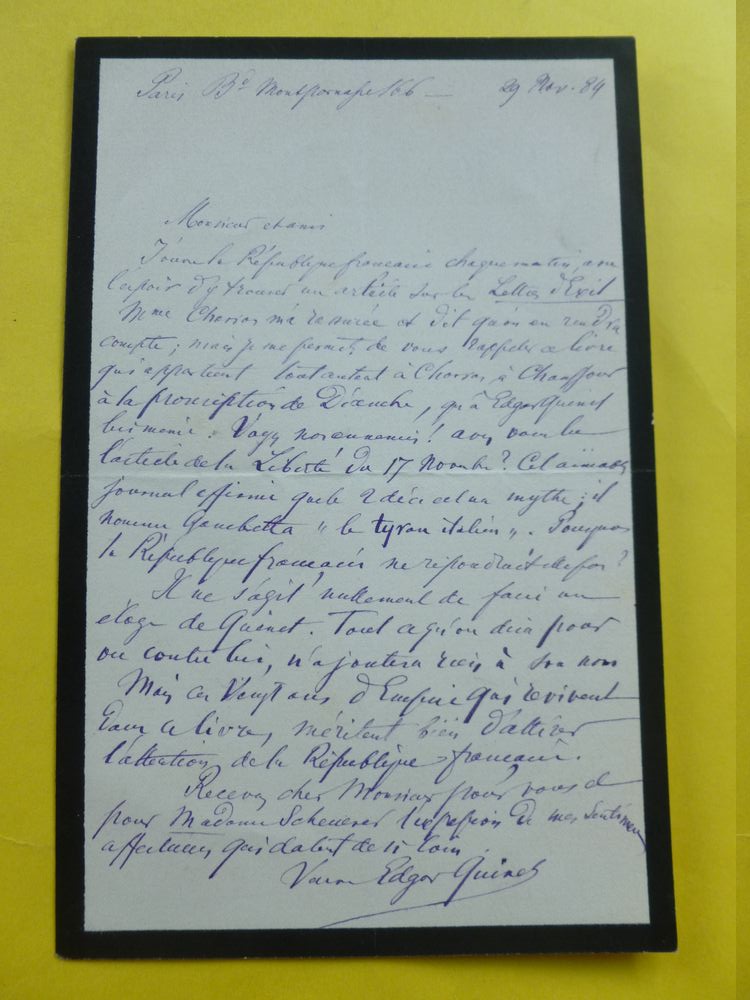 Paris Bd Montparnasse 166 — 29 Nov. 84
Monsieur et ami
J'ouvre la République française chaque matin, avec
l'espoir d'y trouver un article sur les Lettres d'Exil
Mme Charras m'a rassurée et dit qu'on en rendra
compte; mais je me permets de vous rappeler ce livre
qui appartient tout autant à Charras, à Chauffour
à la proscription de Décembre, qu'à Edgar Quinet
lui même. Voyez nos ennemis! avez vous lu
l'article de la Liberté du 17 Novembre? Cet aimable
journal affirme que le 2 déc est un mythe; il
nomme Gambetta "le tyran italien". Pourquoi
la République française ne répondrait elle pas?
Il ne s'agit nullement de faire un
éloge de Quinet. Tout ce qu'on dira pour
ou contre lui, n'ajoutera rien à son nom
Mais ces Vingt ans d'Empire qui revivent
dans ce livre, méritent bien d'attirer
l'attention de la République française.
Recevez cher Monsieur pour vous et
pour Madame Scheurer l'expression de mes sentiments
affectueux qui datent de si loin
Veuve Edgar Quinet